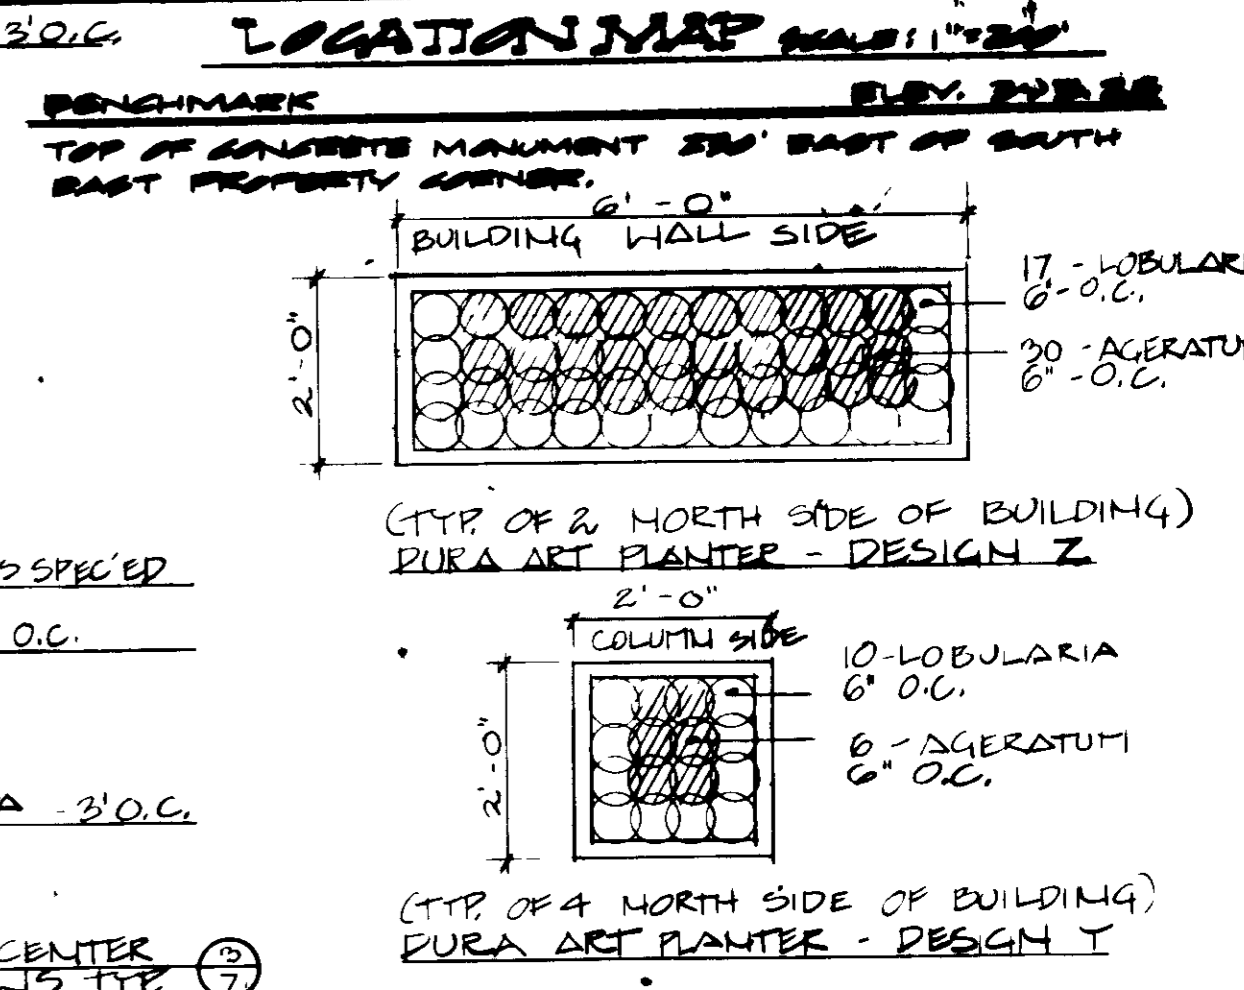 3'O.C.
LOCATION MAP SCALE: 1"=200'
BENCHMARK ELEV.
TOP OF CONCRETE MONUMENT EAST OF SOUTH
EAST PROPERTY CORNER.
6'-0"
BUILDING WALL SIDE
2'-0"
17 - LOBULARI
6"- O.C.
30 - AGERATUM
6" - O.C.
(TYP. OF 2 NORTH SIDE OF BUILDING)
DURA ART PLANTER - DESIGN Z
S SPEC'ED
O.C.
2'-0"
COLUMN SIDE
2'-0"
10-LOBULARIA
6" O.C.
6 - AGERATUM
6" O.C.
A - 3'O.C.
(TYP. OF 4 NORTH SIDE OF BUILDING)
DURA ART PLANTER - DESIGN Y
CENTER
NS TYP.
3
7